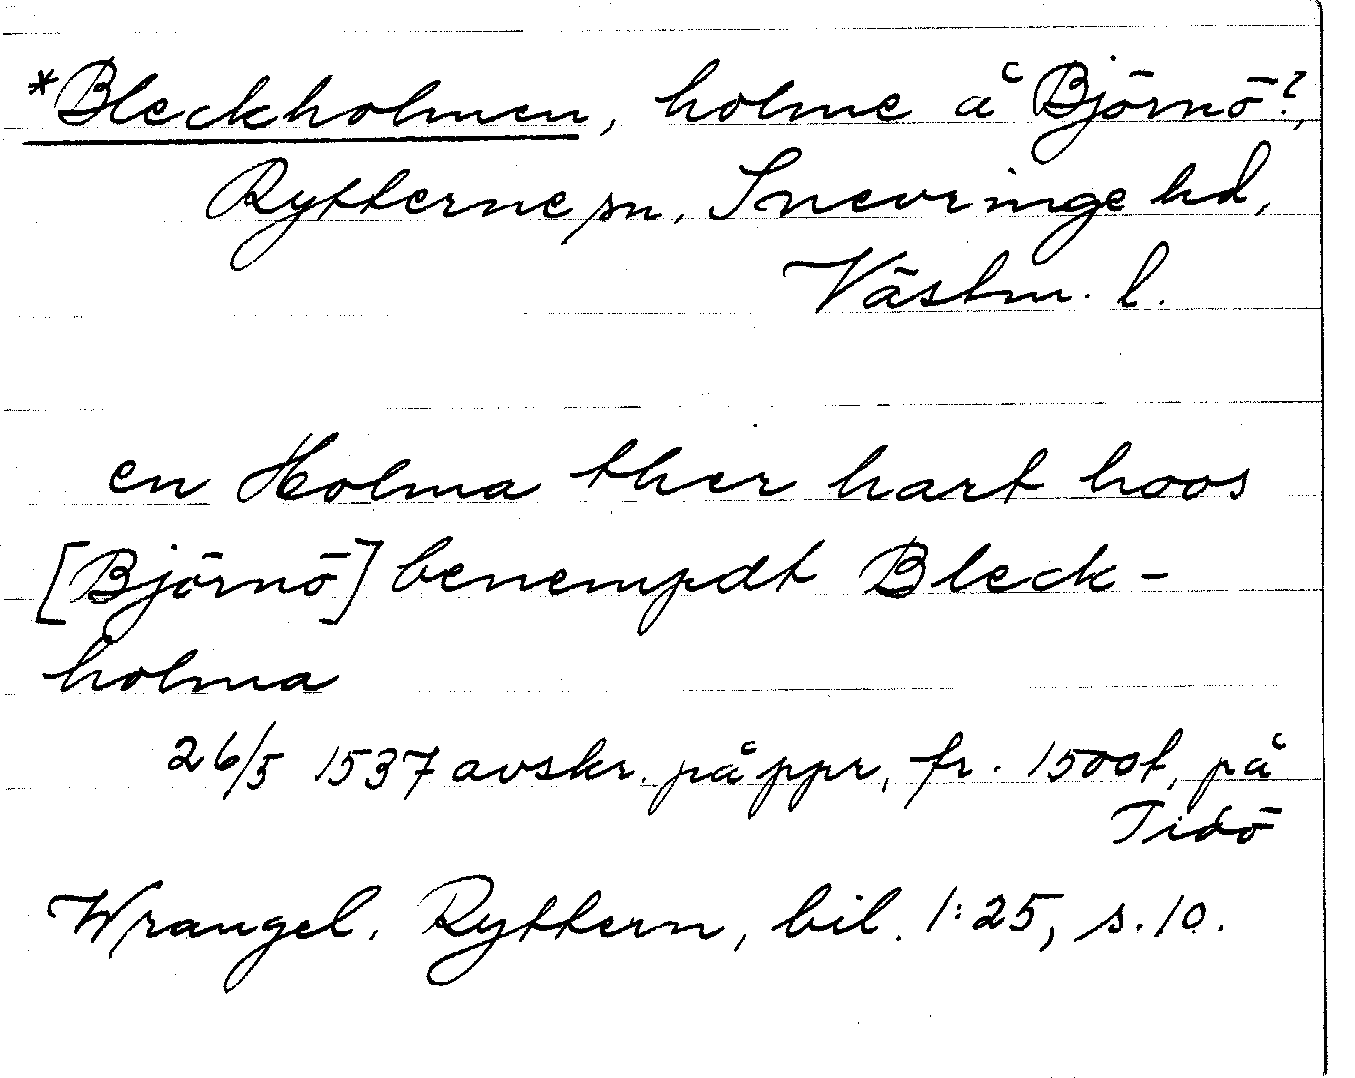 *Bleckholmen, holme å Björnö?,
Rytterne sn, Snevringe hd,
Västm. l.
en Holma ther hart hoos
[Björnö] benempdt Bleck-
holma
26/5 1537 avskr. på ppr, fr. 1500t, på
Tidö
Wrangel. Ryttern, bil. 1:25, s. 10.